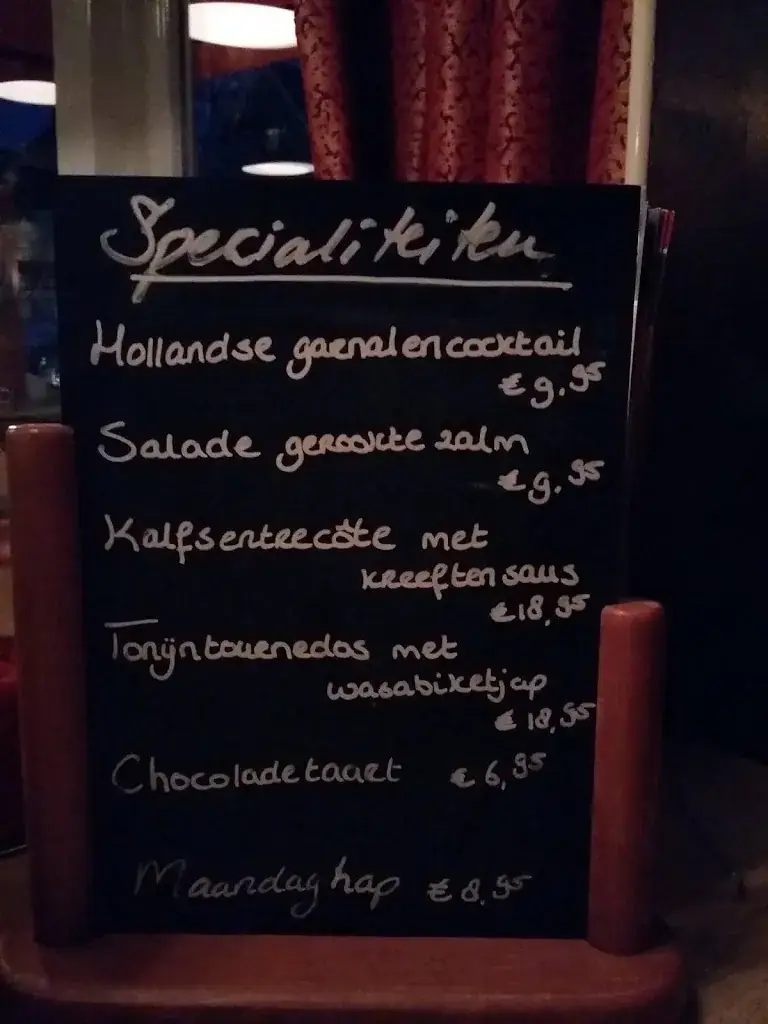 Specialiteiten
Hollandse garnalencocktail
€ 9.95
Salade gerookte zalm
€ 9.95
Kalfsentrecôte met
kreeften saus
€ 18,95
Tonijntournedos met
wasabiketjap
€ 18,95
Chocoladetaart € 6,95
Maandaghap € 8,95